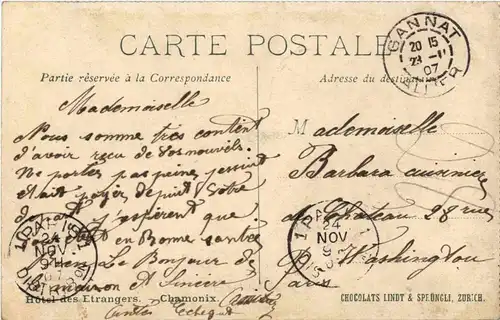 CARTE POSTALE
Partie réservée à la Correspondance
Adresse du destinataire
GANNAT
20 15
23 -11
07
ALLIER
Mademoiselle
Nous somme très content
d'avoir reçu de vos nouvels.
Ne portez pas peine
depuit votre
d j'espèrent que
et en Bonne santée
Le Bonjour de
la maison et Sincère
Mademoiselle
Barbara cuisinière
du Chateau 28 rue
Washington
Paris
PARIS
24
NOV
DISTRIBUTION
PARIS
24
NOV
Hôtel des Etrangers. Chamonix.
CHOCOLATS LINDT & SPRÜNGLI, ZURICH.